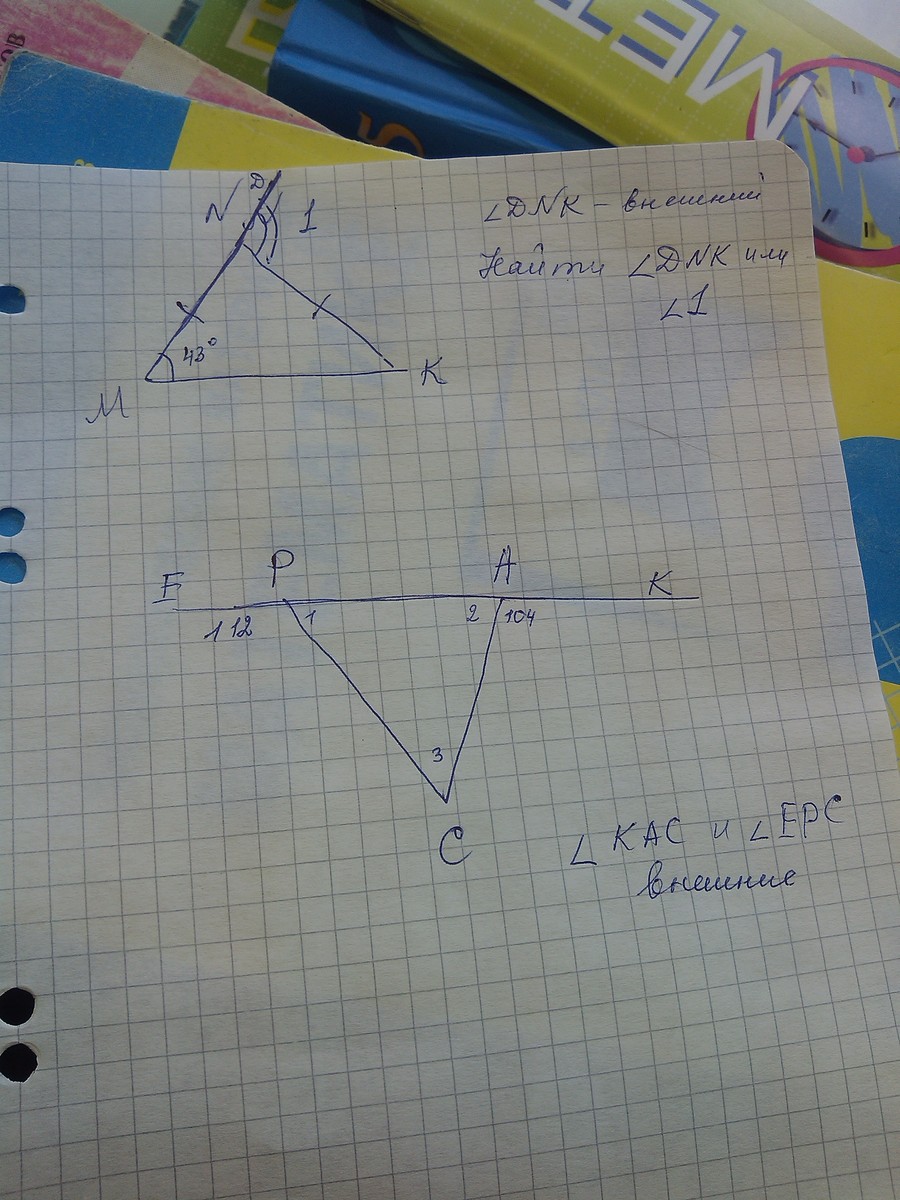 МЕТ
ов
D
N 1
∠DNK – внешний
Найти ∠DNK или
∠1
43°
M
K
E P A K
112 1 2 104
3
C
∠KAC и ∠EPC
внешние